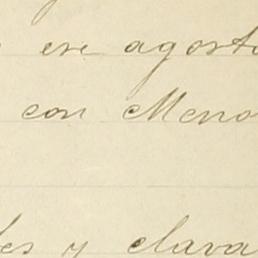 ese agosto
con Meno
les y clava